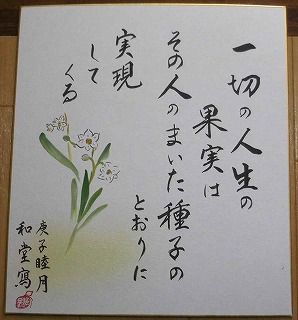 一切の人生の
果実は
その人のまいた種子の
とおりに
実現
して
くる
庚子睦月
和堂寫